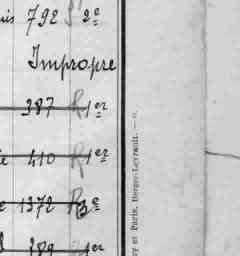 792 2e
Impropre
387 R 1er
410 R 1er
1372 R 3e
389 1er
et Paris, Berger-Levrault. —